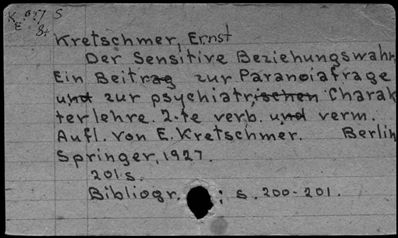 Kretschmer, Ernst
Der Sensitive Beziehungswahn
Ein Beitrag zur Paranoiafrage
und zur psychiatrischen Charak
terlehre. 2-te verb. und verm.
Aufl. von E. Kretschmer. Berlin
Springer, 1927.
201 s.
Bibliogr. : s. 200-201.